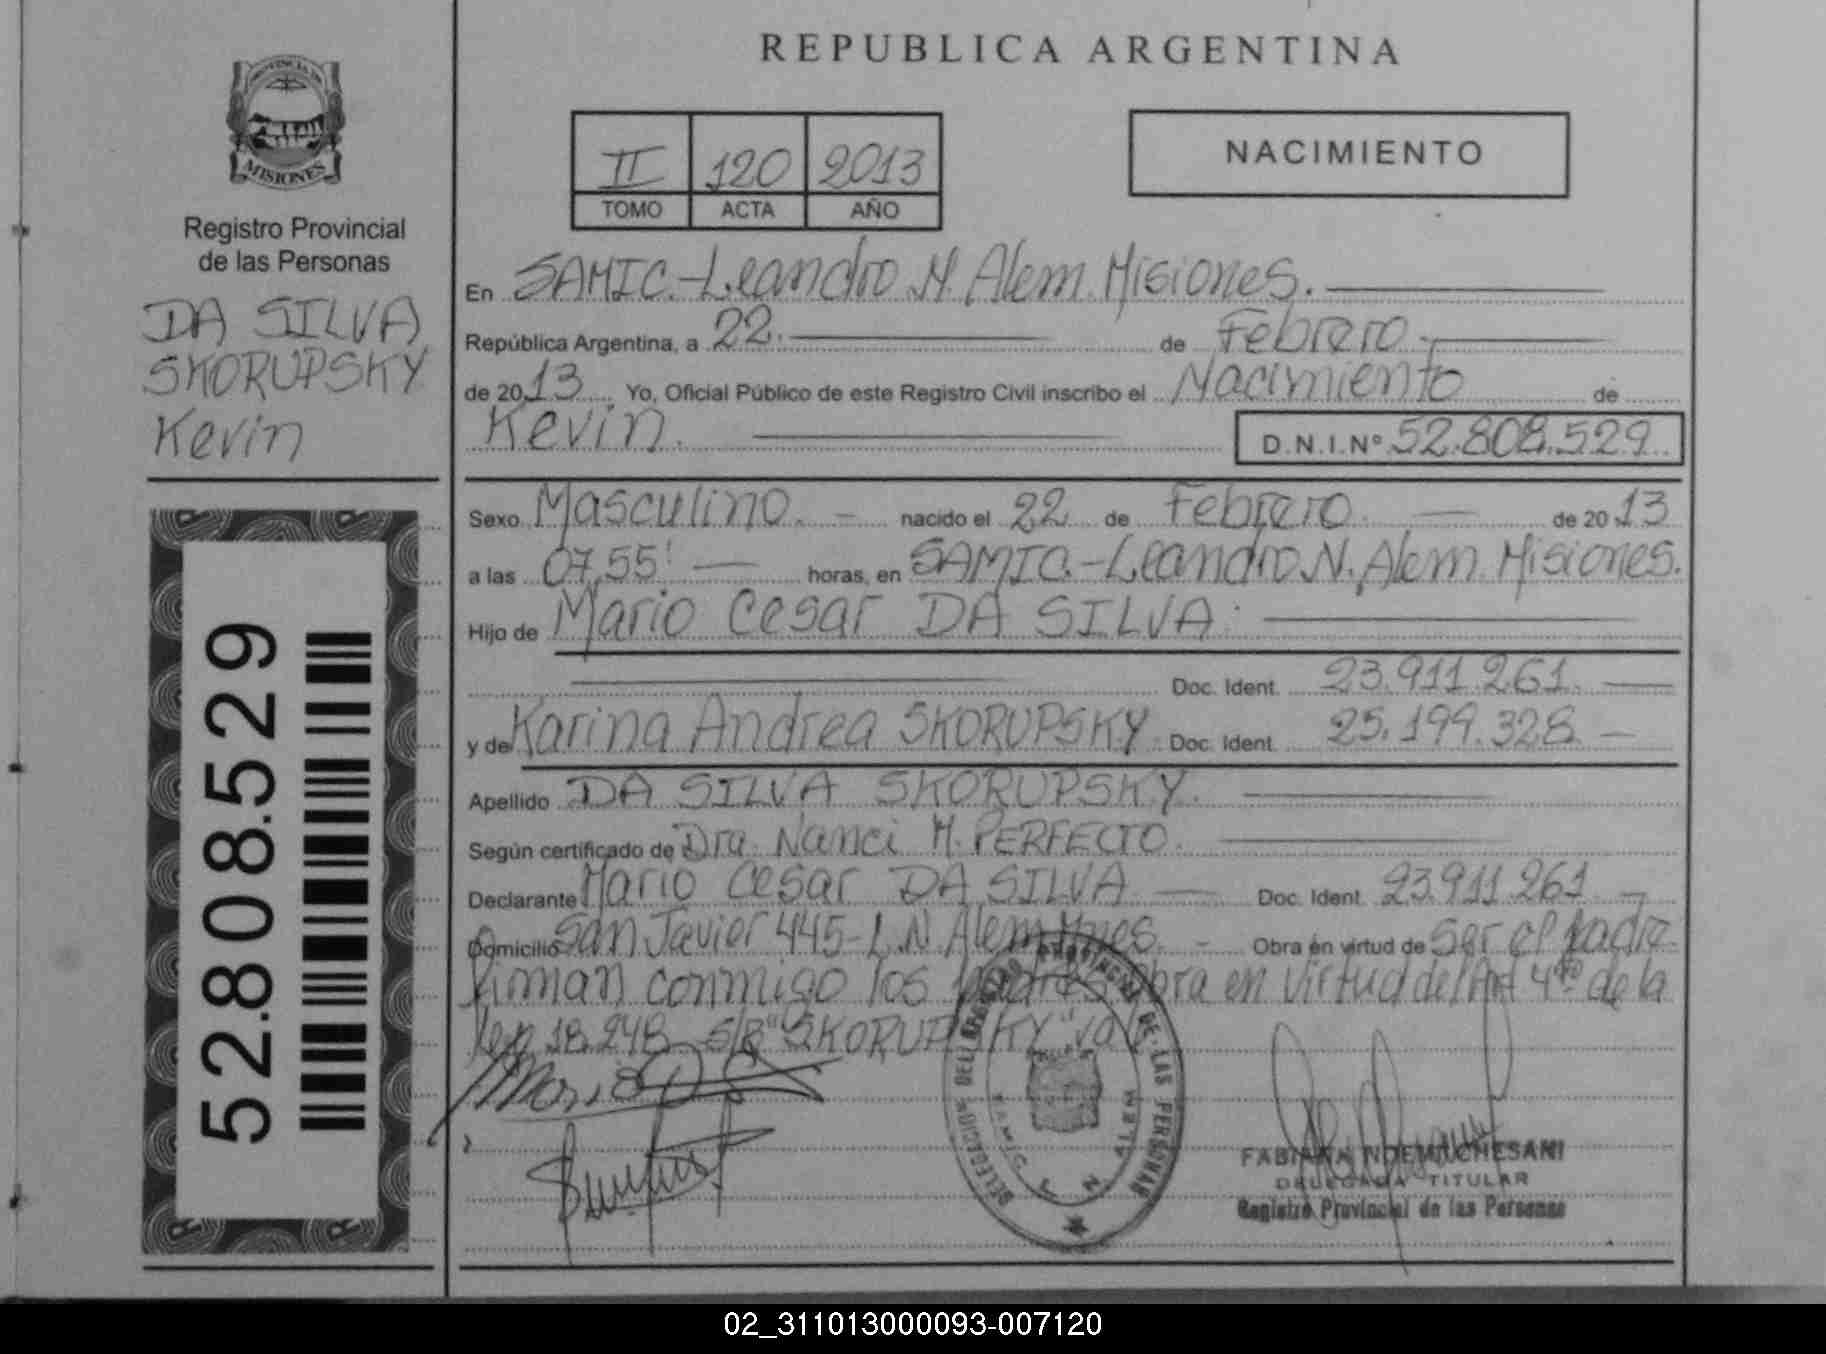 REPUBLICA ARGENTINA
PROVINCIA DE
MISIONES
Registro Provincial
de las Personas
DA SILVA
SKORUPSKY
Kevin
52.808.529
II 120 2013
TOMO ACTA AÑO
NACIMIENTO
En SAMIC.-Leandro N. Alem. Misiones.
República Argentina, a 22. de Febrero
de 2013 Yo, Oficial Público de este Registro Civil inscribo el Nacimiento de
Kevin. D.N.I.Nº 52.808.529
Sexo Masculino. - nacido el 22 de Febrero. de 2013
a las 07,55' horas, en SAMIC.-Leandro N. Alem. Misiones.
Hijo de Mario Cesar DA SILVA.
Doc. Ident. 23.911.261.
y de Karina Andrea SKORUPSKY Doc. Ident. 25.199.328
Apellido DA SILVA SKORUPSKY.
Según certificado de Dra. Nanci M. PERFECTO.
Declarante Mario Cesar DA SILVA Doc. Ident. 23.911.261
Domicilio San Javier 445-L.N. Alem Mnes. - Obra en virtud de Ser el padre
firman conmigo los padres obra en virtud del Art 4to de la
ley 18.248 s/r "SKORUPSKY" va
Mario D S
DELEGACION
PROVINCIAL DE LAS PERSONAS
SAMIC L N ALEM
FABIANA NOEMI CHESANI
DELEGADA TITULAR
Registro Provincial de las Personas
02_311013000093-007120